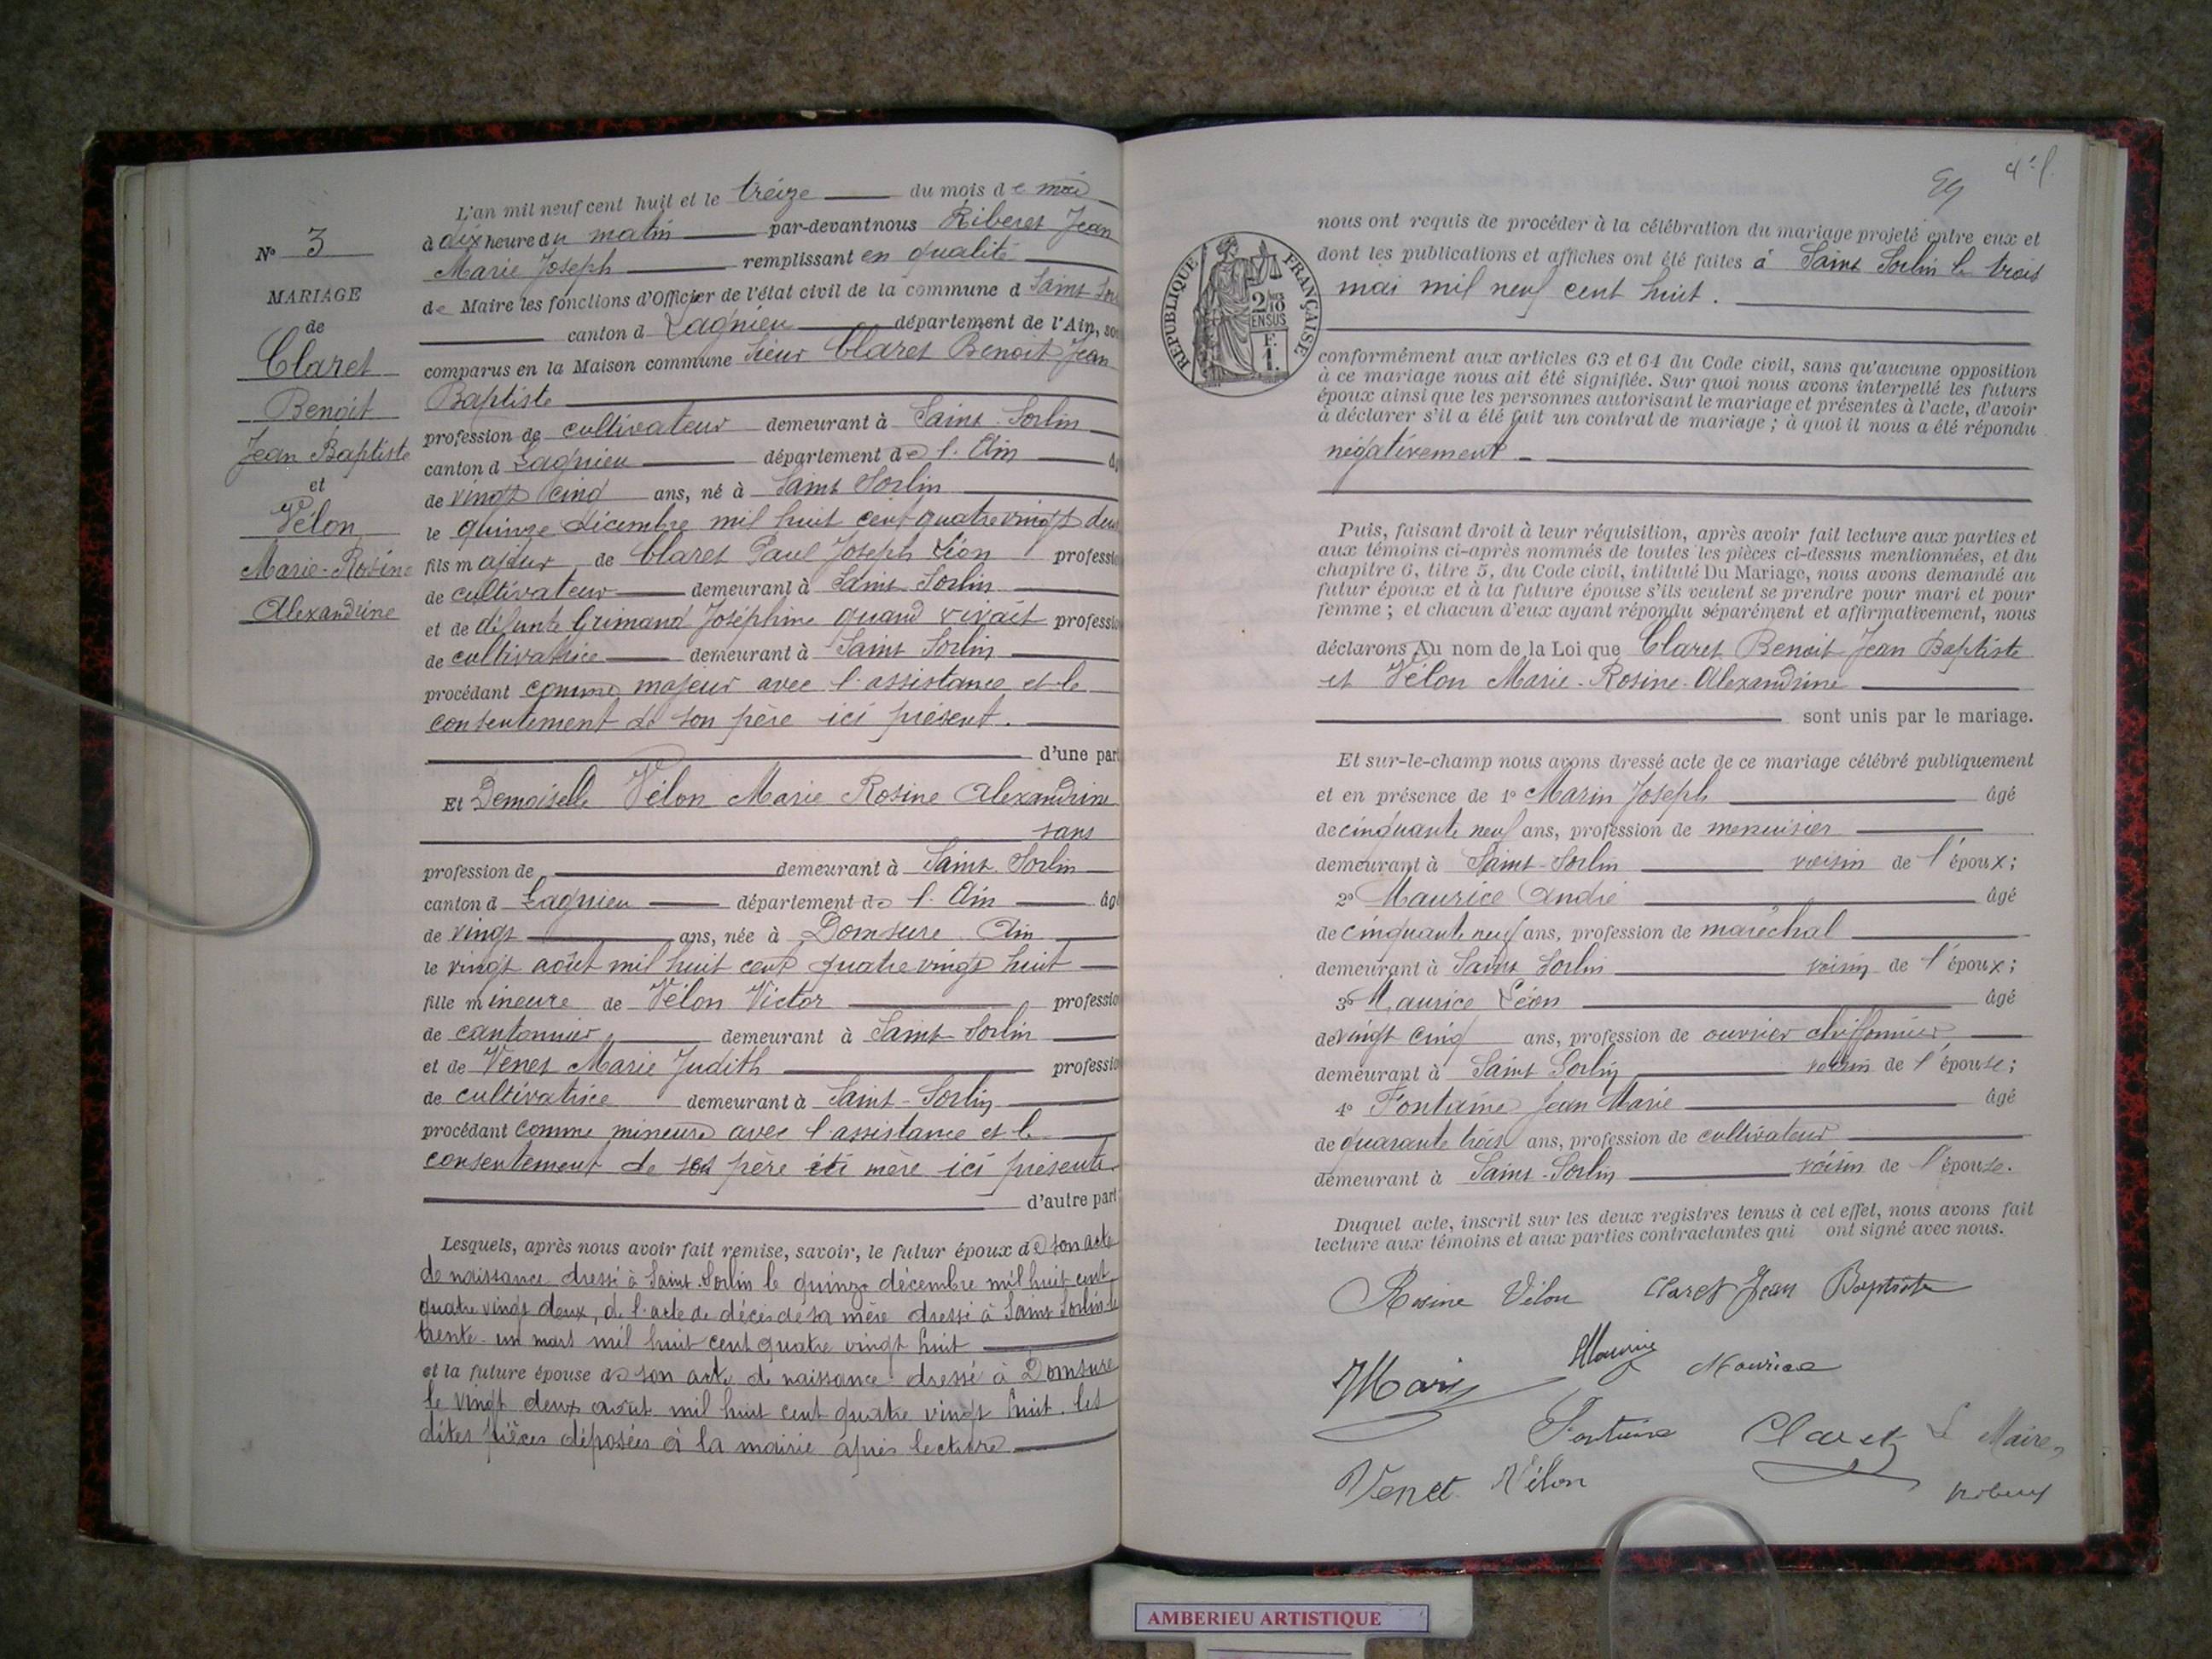 L'an mil neuf cent huit et le treize du mois de mai
à dix heure du matin par-devant nous Riberet Jean
Marie Joseph remplissant en qualité
de Maire les fonctions d'Officier de l'état civil de la commune d Saint Sor
canton d Lagnieu département de l'Ain, so
comparus en la Maison commune Sieur Claret Benoit Jean
Baptiste
profession de cultivateur demeurant à Saint Sorlin
canton d Lagnieu département de l'Ain âg
de vingt cinq ans, né à Saint Sorlin
le quinze décembre mil huit cent quatre vingt deu
fils majeur de Claret Paul Joseph Léon professio
de cultivateur demeurant à Saint Sorlin
et de défunte Grimand Joséphine quand vivait professio
de cultivatrice demeurant à Saint Sorlin
procédant comme majeur avec l'assistance et le
consentement de son père ici présent.
d'une part
Et Demoiselle Vélon Marie Rosine Alexandrine
sans
profession de demeurant à Saint Sorlin
canton d Lagnieu département de l'Ain âgé
de vingt ans, née à Domsure Ain
le vingt août mil huit cent quatre vingt huit
fille mineure de Vélon Victor professio
de cantonnier demeurant à Saint Sorlin
et de Venet Marie Judith professio
de cultivatrice demeurant à Saint-Sorlin
procédant comme mineure avec l'assistance et le
consentement de ses père et mère ici présents
d'autre part
Lesquels, après nous avoir fait remise, savoir, le futur époux de son acte
de naissance dressé à Saint-Sorlin le quinze décembre mil huit cent
quatre vingt deux, de l'acte de décès de sa mère dressé à Saint Sorlin le
trente un mars mil huit cent quatre vingt huit
et la future épouse de son acte de naissance dressé à Domsure
le vingt deux août mil huit cent quatre vingt huit. les
dites pièces déposées à la mairie après lecture
N° 3
MARIAGE
de
Claret
Benoit
Jean Baptiste
et
Vélon
Marie-Rosine
Alexandrine
nous ont requis de procéder à la célébration du mariage projeté entre eux et
dont les publications et affiches ont été faites à Saint Sorlin le trois
mai mil neuf cent huit.
RÉPUBLIQUE FRANÇAISE
2/10
EN SUS
F.
1.
conformément aux articles 63 et 64 du Code civil, sans qu'aucune opposition
à ce mariage nous ait été signifiée. Sur quoi nous avons interpellé les futurs
époux ainsi que les personnes autorisant le mariage et présentes à l'acte, d'avoir
à déclarer s'il a été fait un contrat de mariage ; à quoi il nous a été répondu
négativement
Puis, faisant droit à leur réquisition, après avoir fait lecture aux parties et
aux témoins ci-après nommés de toutes les pièces ci-dessus mentionnées, et du
chapitre 6, titre 5, du Code civil, intitulé Du Mariage, nous avons demandé au
futur époux et à la future épouse s'ils veulent se prendre pour mari et pour
femme ; et chacun d'eux ayant répondu séparément et affirmativement, nous
déclarons Au nom de la Loi que Claret Benoit Jean Baptiste
et Vélon Marie-Rosine-Alexandrine
sont unis par le mariage.
Et sur-le-champ nous avons dressé acte de ce mariage célébré publiquement
et en présence de 1° Marin Joseph âgé
de cinquante neuf ans, profession de menuisier
demeurant à Saint-Sorlin voisin de l'époux ;
2° Maurice André âgé
de cinquante neuf ans, profession de maréchal
demeurant à Saint Sorlin voisin de l'époux ;
3° Maurice Léon âgé
de vingt cinq ans, profession de ouvrier chiffonnier
demeurant à Saint Sorlin voisin de l'épouse ;
4° Fontaine Jean Marie âgé
de quarante trois ans, profession de cultivateur
demeurant à Saint-Sorlin voisin de l'épouse.
Duquel acte, inscrit sur les deux registres tenus à cet effet, nous avons fait
lecture aux témoins et aux parties contractantes qui ont signé avec nous.
Rosine Vélon Claret Jean Baptiste
JMarin Maurice Maurice
Fontaine Claret Le Maire,
Venet Vélon Riberet
AMBERIEU ARTISTIQUE